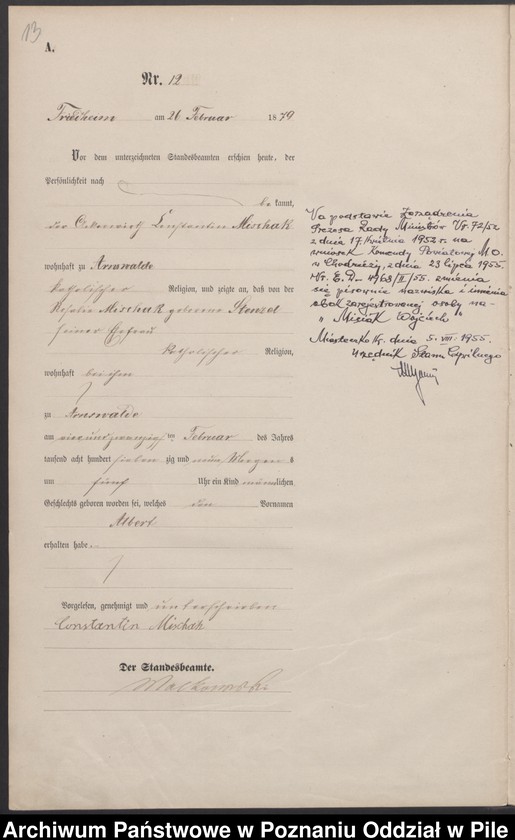 13
A.
Nr. 12
Friedheim am 26 Februar 1879
Vor dem unterzeichneten Standesbeamten erschien heute, der
Persönlichkeit nach
be kannt,
der Constantin Mischak
wohnhaft zu Arnswalde
katholischer Religion, und zeigte an, daß von der
Rosalie Mischak geborene Stenzel
seiner Ehefrau
katholischer Religion,
wohnhaft bei ihm
zu Arnswalde
am ein und zwanzig ten Februar des Jahres
tausend acht hundert sieben zig und neun Morgens
um fünf Uhr ein Kind männlichen
Geschlechts geboren worden sei, welches den Vornamen
Albert
erhalten habe.
Vorgelesen, genehmigt und unterschrieben
Constantin Mischak
Der Standesbeamte.
Na podstawie Zarządzenia
Prezesa Rady Ministrów Nr. 72/52
z dnia 17. kwietnia 1952 r. na
wniosek Komendy Powiatowej M.O.
w Chodzieży, z dnia 23 lipca 1955.
Nr. 4968/II/55. zmienia
się pisownię nazwiska i imienia
obok zarejestrowanej osoby na-
"Misiak Wojciech"
Miasteczko Kr. dnia 5. VIII. 1955.
Urzędnik Stanu Cywilnego
Archiwum Państwowe w Poznaniu Oddział w Pile